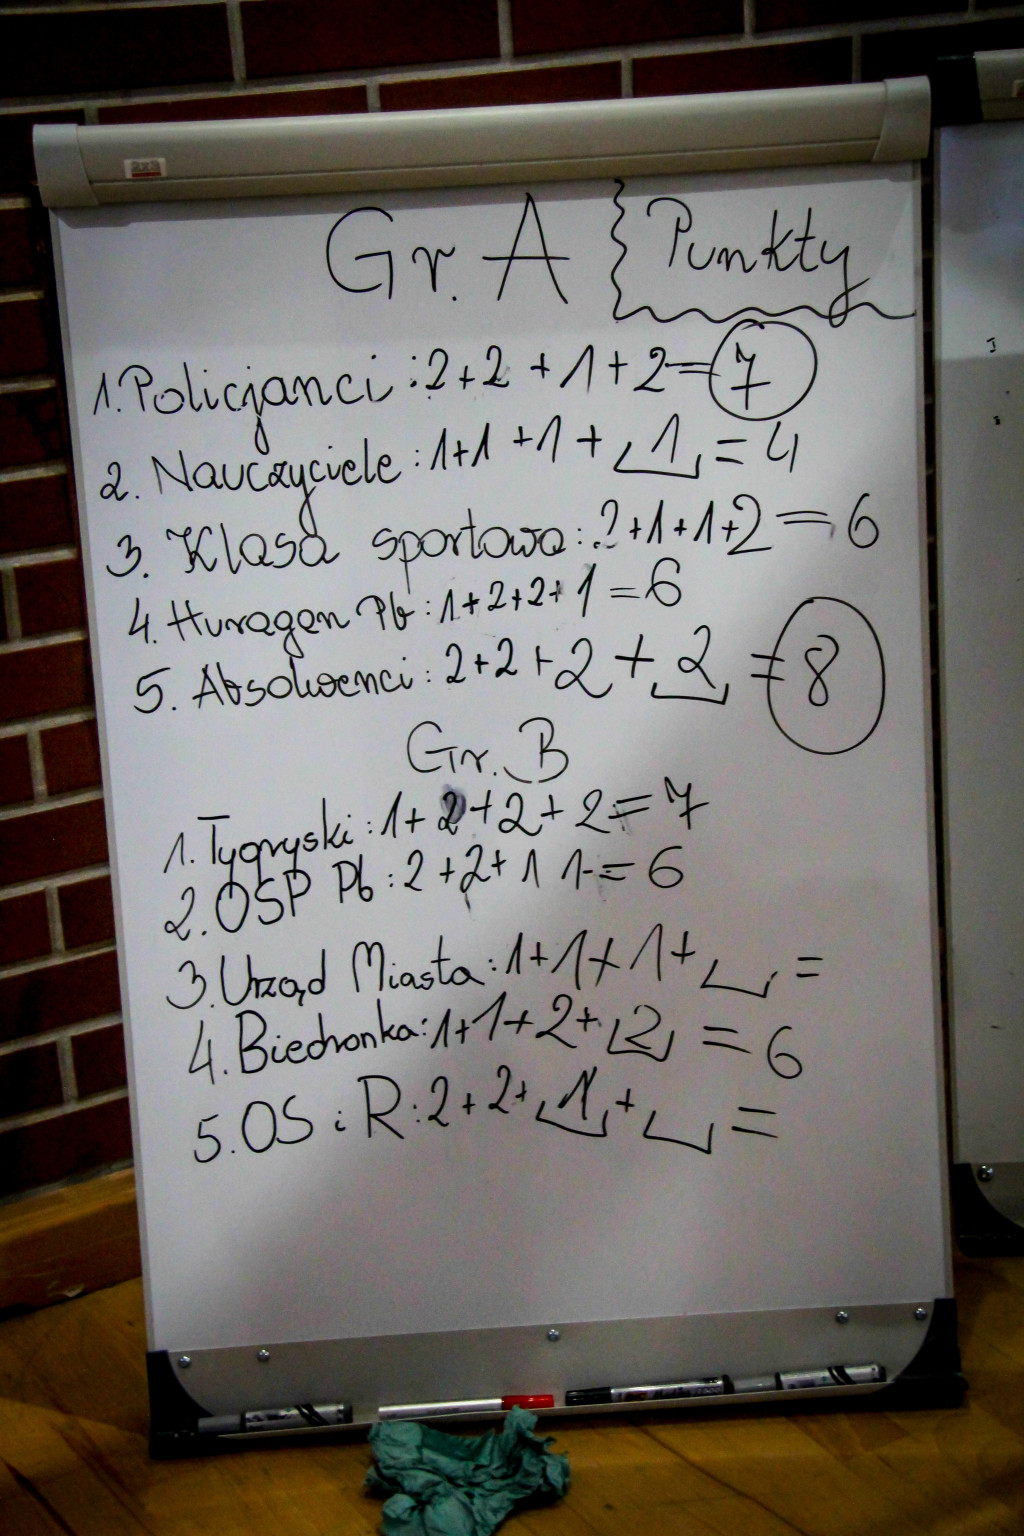 Gr. A Punkty
1. Policjanci : 2+2+1+2=7
2. Nauczyciele : 1+1+1+1=4
3. Klasa sportowa : 2+1+1+2=6
4. Huragan Pb : 1+2+2+1=6
5. Absolwenci : 2+2+2+2=8
Gr. B
1. Tygryski : 1+2+2+2=7
2. OSP Pb : 2+2+1 1=6
3. Urząd Miasta : 1+1+1+ =
4. Biedronka : 1+1+2+2=6
5. OS i R : 2+2+1+ =